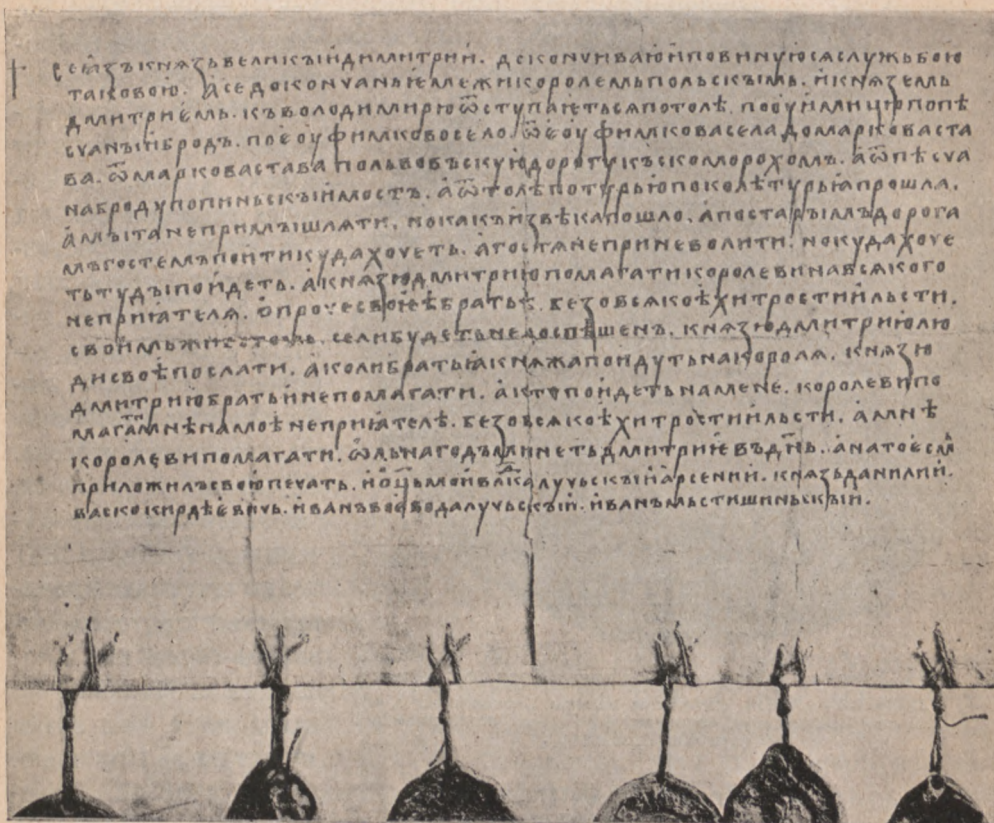 се азъ кнѧзь великъıи димитрии . доконѵиваю и повинуюсѧ служьбою
таковою . а се доконѵаньѥ межи королемь польскъıмь . и кнѧзємь
дмитриємь . къ володимирю ѿступаѥтьсѧ потолѣ . по оуимицю по пѣ
сѵанъıи бродъ . по еоуфимково село . ѿ еоуфимкова села до маркова ста
ва . ѿ маркова става по львовъскую дорогу къ скоморохомъ . а ѿ пѣсѵа
на броду по пиньскъıи мостъ . а ѿтолѣ по турью по колѣ турьꙗ прошла .
а мъıта не примъıшлѧти , но какъ изъ вѣка пошло . а по старъıмъ дорога
мъ гостемъ поити куда хоѵеть . а гостѧ не приневолити . но куда хоѵе
ть тудъı поидеть . а кнѧзю дмитрию помагати королеви на всѧкого
неприꙗтелѧ . опроѵе своѥѣ братьѣ . безо всѧкоѣ хитрости и льсти .
своимь животомь . сели будеть недоспѣшенъ . кнѧзю дмитрию лю
ди своѣ послати . а коли братьꙗ кнѧжа поидуть на королѧ . кнѧзю
дмитрию братьи не помагати . а кто поидеть на мене . королеви по
магат мнѣ на моѣ неприꙗтелѣ . безо всѧкоѣ хитрости и льсти . а мнѣ
королеви помагати . ѡльна годъ минеть дмитриѥвъ днь . а на то есмь
приложилъ свою пеѵать . и оць мои влдка луѵьскъıи арсении . кнѧзь данилии .
васко кирдѣевиѵь . иванъ воевода луѵьскъıи . иванъ мьстишиньскъıи .